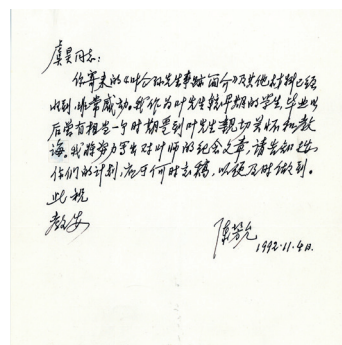 虞昊同志:
你寄来的《叶企孙先生事迹简介》及其他材料已经
收到,非常感动。我作为叶先生较早期的学生,毕业以
后曾有相当一个时期受到叶先生亲切关怀和教
诲,我将努力写出对叶师的纪念文章,请告知
你们的计划,应于何时交稿,以便及时做到。
此祝
教安
陈芳允
1992.11.4日.